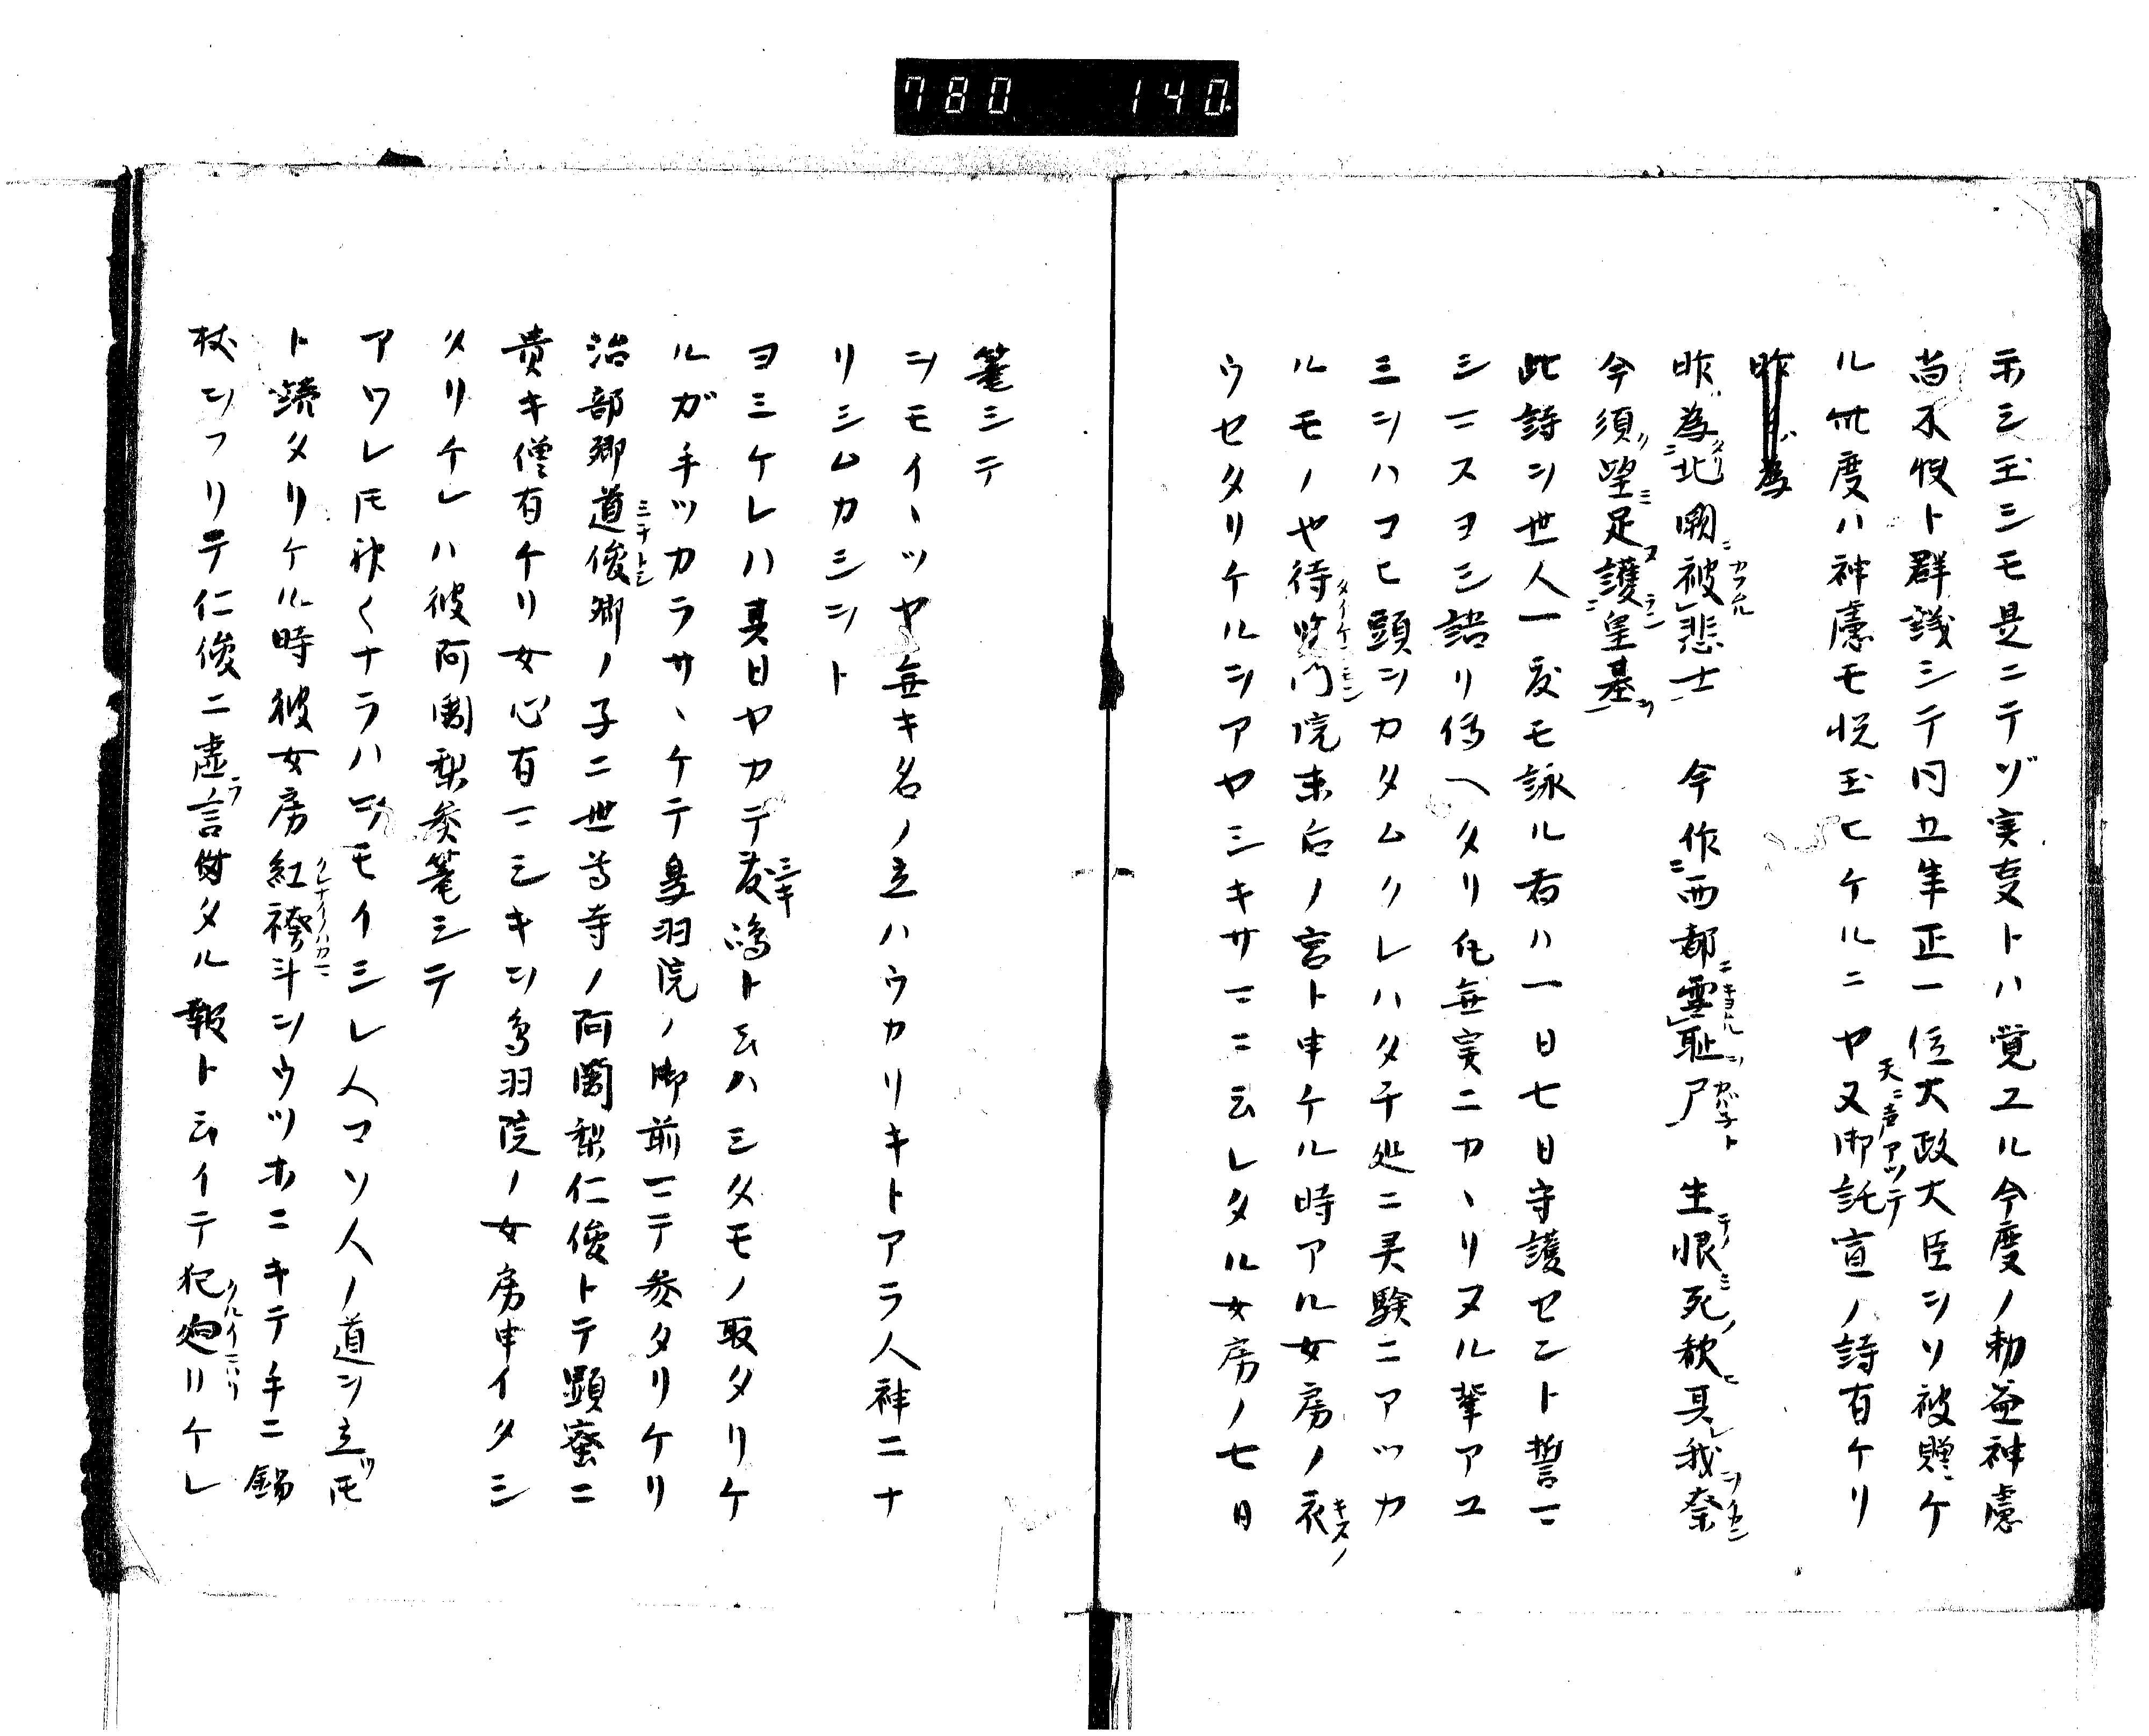 780 140
示シ玉シモ是ニテゾ実支トハ覚ユル今度ノ勅益神慮
尚不悦ト群議シテ同五年正一位大政大臣ヲソ被贈ケ
ル此度ハ神慮モ悦玉ヒケルニヤ又天ニ声アツテ御託宣ノ詩有ケリ
昨為北闕被悲士 今作西都雪恥尸 生恨死歓其我奈
今須望足護皇基
此詩ヲ世人一度モ詠ル者ハ一日七日守護セント誓ニ
シマスヨシ語リ伝ヘタリ凡無実ニカヽリヌル輩アユ
ミヲハコヒ頭ヲカタムクレハタチ処ニ霊験ニアツカ
ルモノや待賢門院未后ノ宮ト申ケル時アル女房ノ衣
ウセタリケルヲアヤシキサマニ云レタル女房ノ七日
篭シテ
ヲモイヽツヤ無キ名ノ立ハウカリキトアラ人神ニナ
リシムカシヲト
ヨミケレハ其日ヤカテ敷嶋ト云ハシタモノ取タリケ
ルガ手ツカラサヽケテ鳥羽院ノ御前ニテ参タリケリ
治部卿道俊卿ノ子ニ世尊寺ノ阿闍梨仁俊トテ顕蜜ニ
貴キ僧有ケリ女心有マシキヲ鳥羽院ノ女房申イタシ
タリケレハ彼阿闍梨参篭シテ
アワレ𪜈神〱ナラハヲモイシレ人マソ人ノ道ヲ立𪜈
ト読タリケル時彼女房紅袴斗ヲウツホニキテ手ニ錫
杖ヲフリテ仁俊ニ虚言付タル報ト云イテ犯廻リケレ